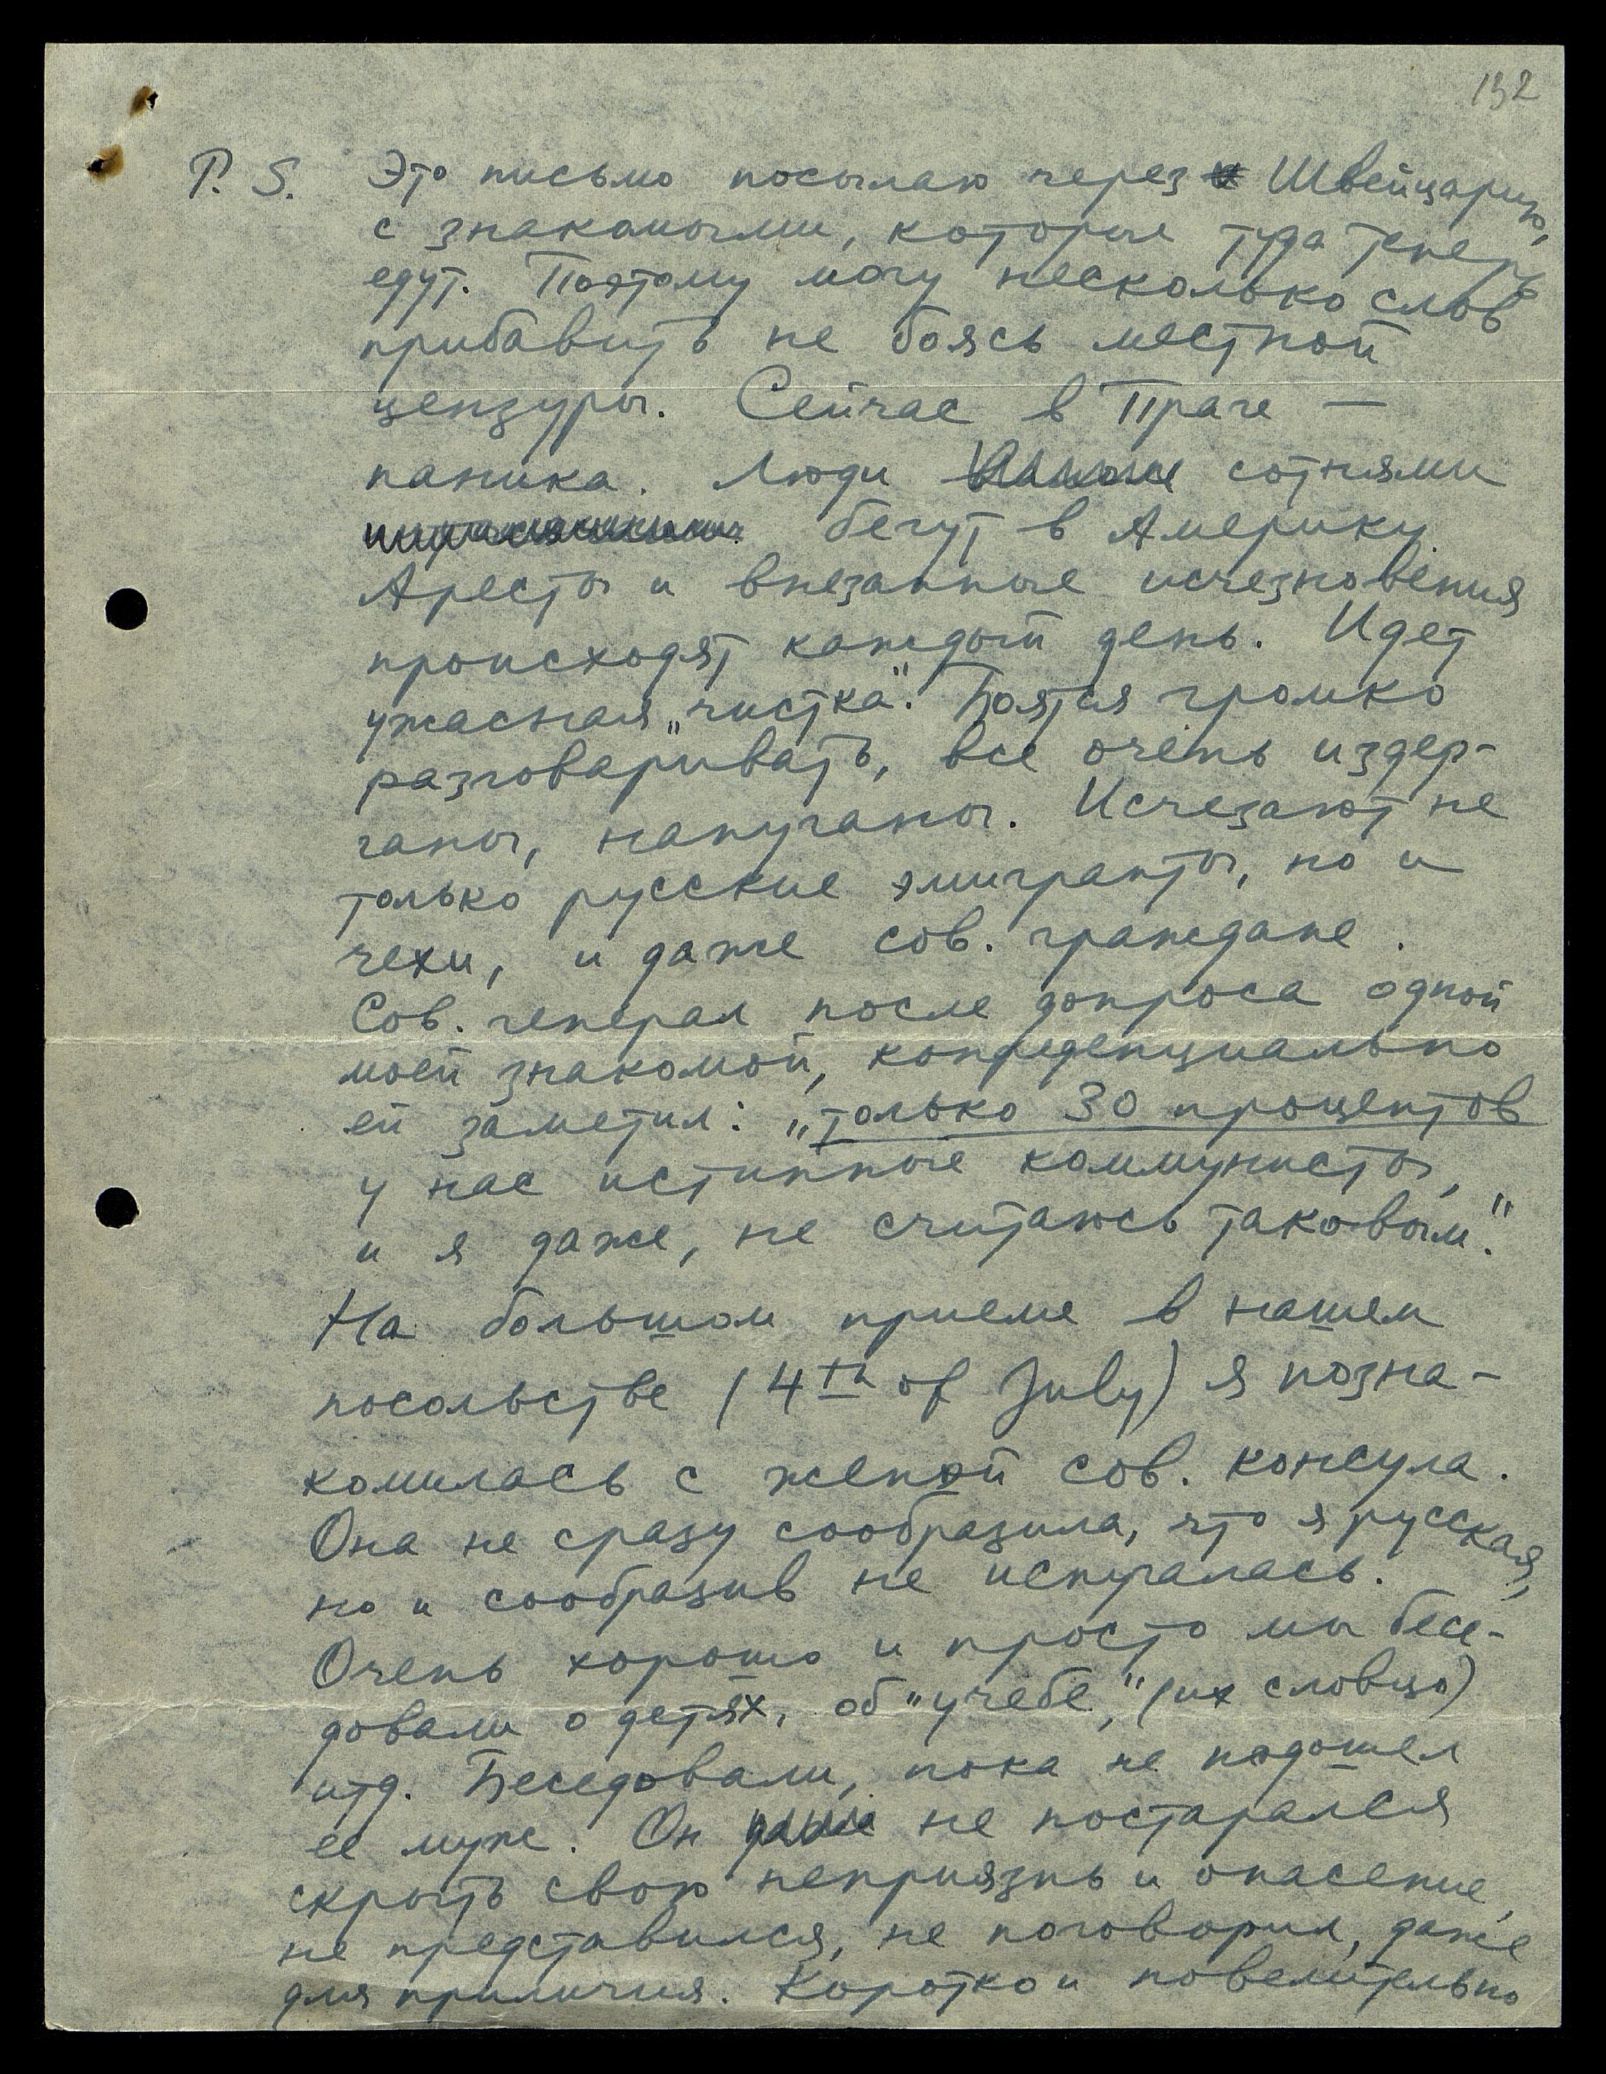 132
P. S. Это письмо посылаю через Швейцарию,
с знакомыми, которые туда теперь
едут. Поэтому могу несколько слов
прибавить не боясь местной
цензуры. Сейчас в Праге —
паника. Люди сотнями
бегут в Америку.
Аресты и внезапные исчезновения
происходят каждый день. Идет
ужасная „чистка". Боятся громко
разговаривать, все очень издер-
ганы, напуганы. Исчезают не
только русские эмигранты, но и
чехи, и даже сов. граждане.
Сов. генерал после допроса одной
моей знакомой, конфеденциально
ей заметил: „только 30 процентов
у нас истинные коммунисты,
и я даже, не считаюсь таковым".
На большом приеме в нашем
посольстве (4th of July) я позна-
комилась с женой сов. консула.
Она не сразу сообразила, что я русская,
но и сообразив не испугалась.
Очень хорошо и просто мы бесе-
довали о детях, об "учебе," (их словцо)
итд. Беседовали, пока не подошел
ее муж. Он не постарался
скрыть свою неприязнь и опасение,
не представился, не поговорил, даже
для приличия. Коротко и повелительно